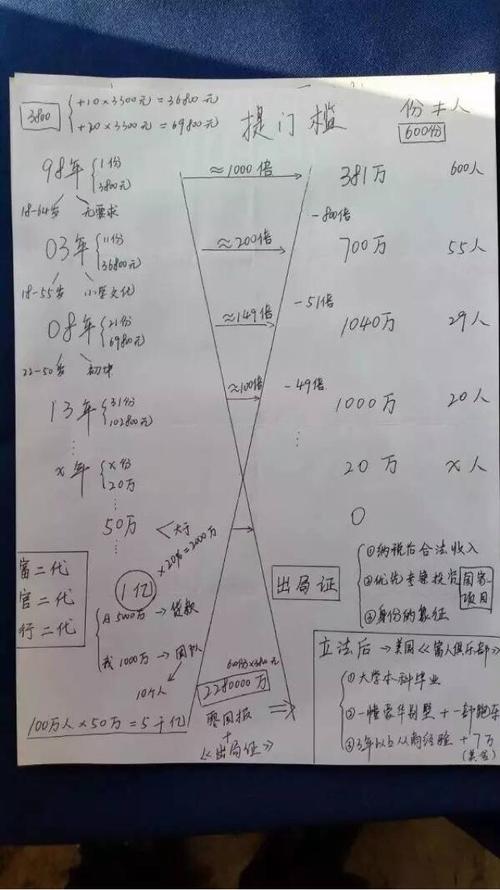 3800
+10×3300元=36800元
+20×3300元=69800元
提门槛
份≠人
600份
98年
1份
3800元
≈1000倍
381万
600人
18-64岁 无要求
-800倍
03年
11份
36800元
≈200倍
700万
55人
18-55岁 小学文化
-51倍
08年
21份
69800元
≈149倍
1040万
29人
22-50岁 初中
-49倍
≈100倍
13年
31份
102800元
1000万
20人
x年
x份
20万
20万
x人
50万
大于
0
富二代
官二代
行二代
1亿
×20%=2000万
自5000万→贷款
我1000万→团队
10个人
出局证
①纳税后合法收入
②优先考察投资
国家项目
③身份的象征
立法后→美国《富人俱乐部》
①大学本科毕业
②一幢豪华别墅+一部跑车
③3年以上从商经验+7万
(美金)
2280000万
零回报
+
《出局证》
100万人×50万=5千亿